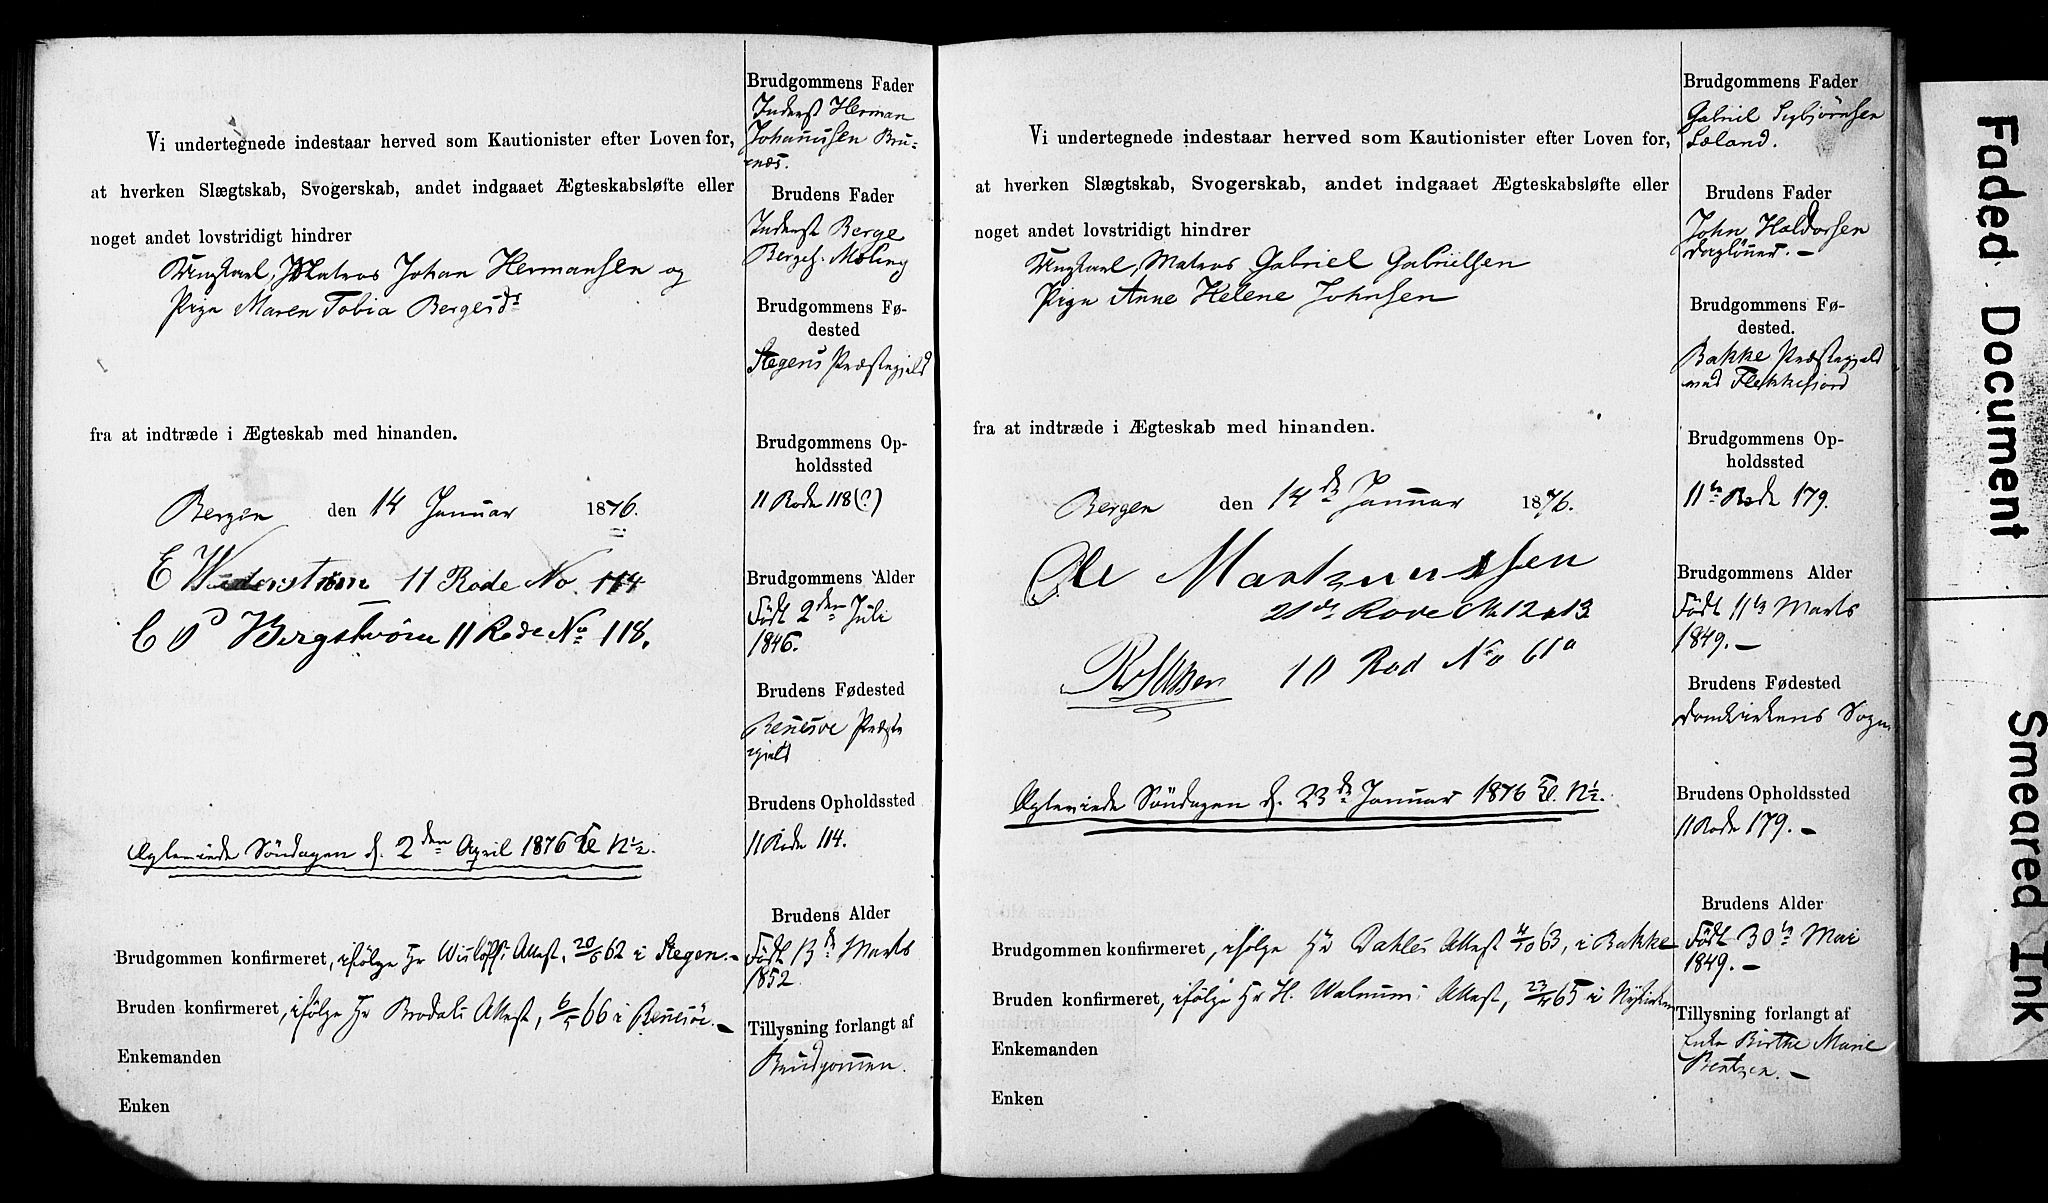 Vi undertegnede indestaar herved som Kautionister efter Loven for,
at hverken Slægtskab, Svogerskab, andet indgaaet Ægteskabsløfte eller
noget andet lovstridigt hindrer
Ungkarl, Matros Johan Hermansen og
Pige Maren Tobia Bergesd
fra at indtræde i Ægteskab med hinanden.
Bergen den 14 Januar 1876.
E Wederstrøm 11 Rode No. 114
C P Bergstrøm 11 Rode No 118.
Ægteviede Søndagen d. 2den April 1876
Brudgommen konfirmeret, ifølge Hr Wisløffs Attest, 62 i Stegen.
Bruden konfirmeret, ifølge Hr Brodals Attest, 66 i Benesøe.
Enkemanden
Enken
Brudgommens Fader
Inderst Herman
Johannssen Bru-
næs.
Brudens Fader
Inderst Berge
Berges. Moling
Brudgommens Fø-
dested
Stegens Præstegjeld
Brudgommens Op-
holdssted
11 Rode 118 (?)
Brudgommens Alder
Født 2den Juli
1846.
Brudens Fødested
Benesøe Præste
gjeld
Brudens Opholdssted
11 Rode 114.
Brudens Alder
Født 13d Marts
1852.
Tillysning forlangt af
Brudgommen.
Vi undertegnede indestaar herved som Kautionister efter Loven for,
at hverken Slægtskab, Svogerskab, andet indgaaet Ægteskabsløfte eller
noget andet lovstridigt hindrer
Ungkarl, Matros Gabriel Gabrielsen
Pige Anne Helene Johnsen
fra at indtræde i Ægteskab med hinanden.
Bergen den 14d Januar 1876.
Ole Martinussen
21de Rode No 12 & 13
10 Rod No 61a
Ægteviede Søndagen d. 23de Januar 1876
Brudgommen konfirmeret, ifølge Hr Dahles Attest 4/10 63, i Bakke
Bruden konfirmeret, ifølge Hr H. Walnums Attest, 23/4 65 i Nykirken
Enkemanden
Enken
Brudgommens Fader
Gabriel Sigbjørnsen
Løland.
Brudens Fader
John Haldorsen
Dagløner. —
Brudgommens Fø-
dested.
Bakke Præstegjeld
ved Flekkefjord
Brudgommens Op-
holdssted
11te Rode 179.
Brudgommens Alder
Født 11te Marts
1849. —
Brudens Fødested
Domkirkens Sogn
Brudens Opholdssted
11 Rode 179. —
Brudens Alder
Født 30te Mai
1849. —
Tillysning forlangt af
Enke Birthe Marie
Bentzen. —
Faded Document
Smeared Ink